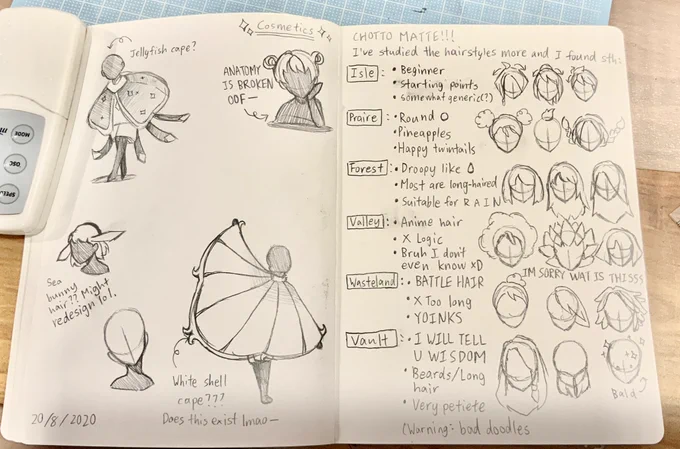 Cosmetics
Jellyfish cape?
ANATOMY
IS BROKEN
OOF—
Sea
bunny
hair?? Might
redesign lol.
White shell
cape???
Does this exist lmao—
20/8/2020
MODE
OSC
CHOTTO MATTE!!!
I've studied the hairstyles more and I found sth:
Isle: • Beginner
• starting points
• somewhat generic(?)
Praire: • Round O
• Pineapples
• Happy twintails
Forest: • Droopy like
• Most are long-haired
• Suitable for RAIN
Valley: • Anime hair
• X Logic
• Bruh I don't
even know xD
IM SORRY WAT IS THISSS
Wasteland: • BATTLE HAIR
• X Too long
• YOINKS
Vault: • I WILL TELL
U WISDOM
• Beards/Long
hair
• Very petiete
Bald
(Warning: bad doodles